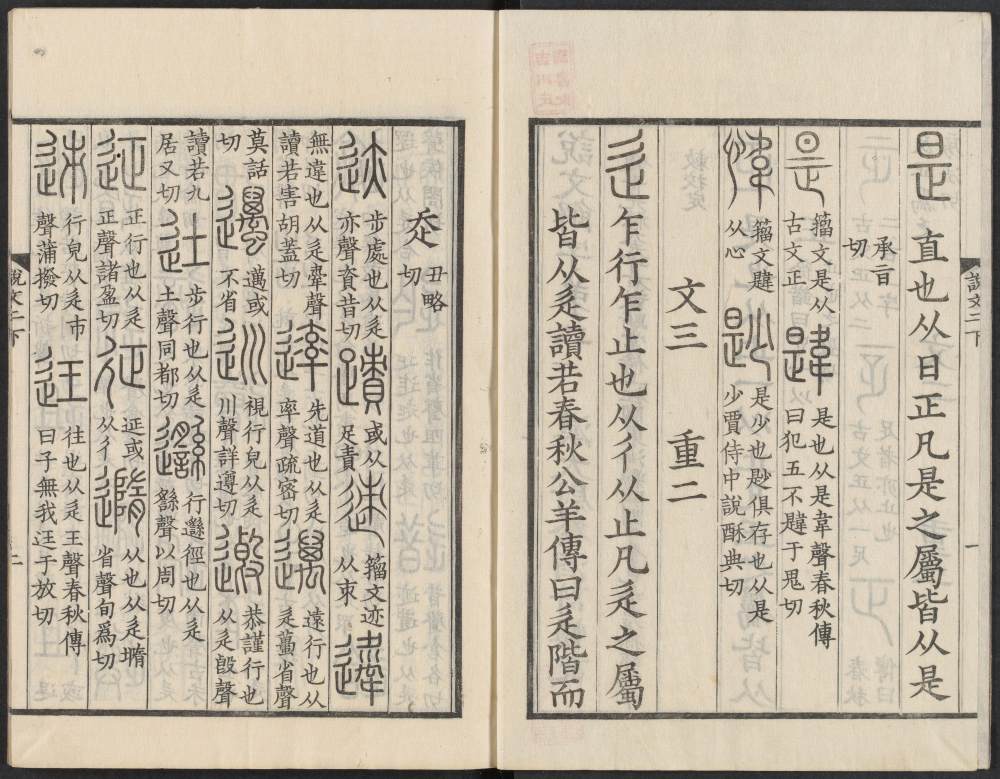 說文二下
一
是 直也从日正凡是之屬皆从是
承㫖
切
是 籒文是从
古文正
韙 是也从是韋聲春秋傳
曰犯五不韙于鬼切
籒文韙
从心
尟 是少也尟俱存也从是
少賈侍中說酥典切
文三 重二
辵 乍行乍止也从彳从止凡辵之屬
皆从辵讀若春秋公羊傳曰辵階而
丑略
切
迹 步處也从辵
亦聲資昔切
蹟 或从
足責
籒文迹
从朿
達
無違也从辵羍聲
讀若害胡蓋切
䢦 先道也从辵
率聲疏密切
邁 遠行也从
辵蠆省聲
莫話
切
邁或
不省
巡 視行皃从辵
川聲詳遵切
恭謹行也
从辵𣪘聲
讀若九
居又切
徒 步行也从辵
土聲同都切
邎 行邎徑也从辵
繇聲以周切
延 正行也从辵
正聲諸盈切
征 延或
从彳
隨 从也从辵𡐦
省聲旬爲切
行皃从辵巿
聲蒲撥切
迋 往也从辵王聲春秋傳
曰子無我迋于放切
說文二下
二